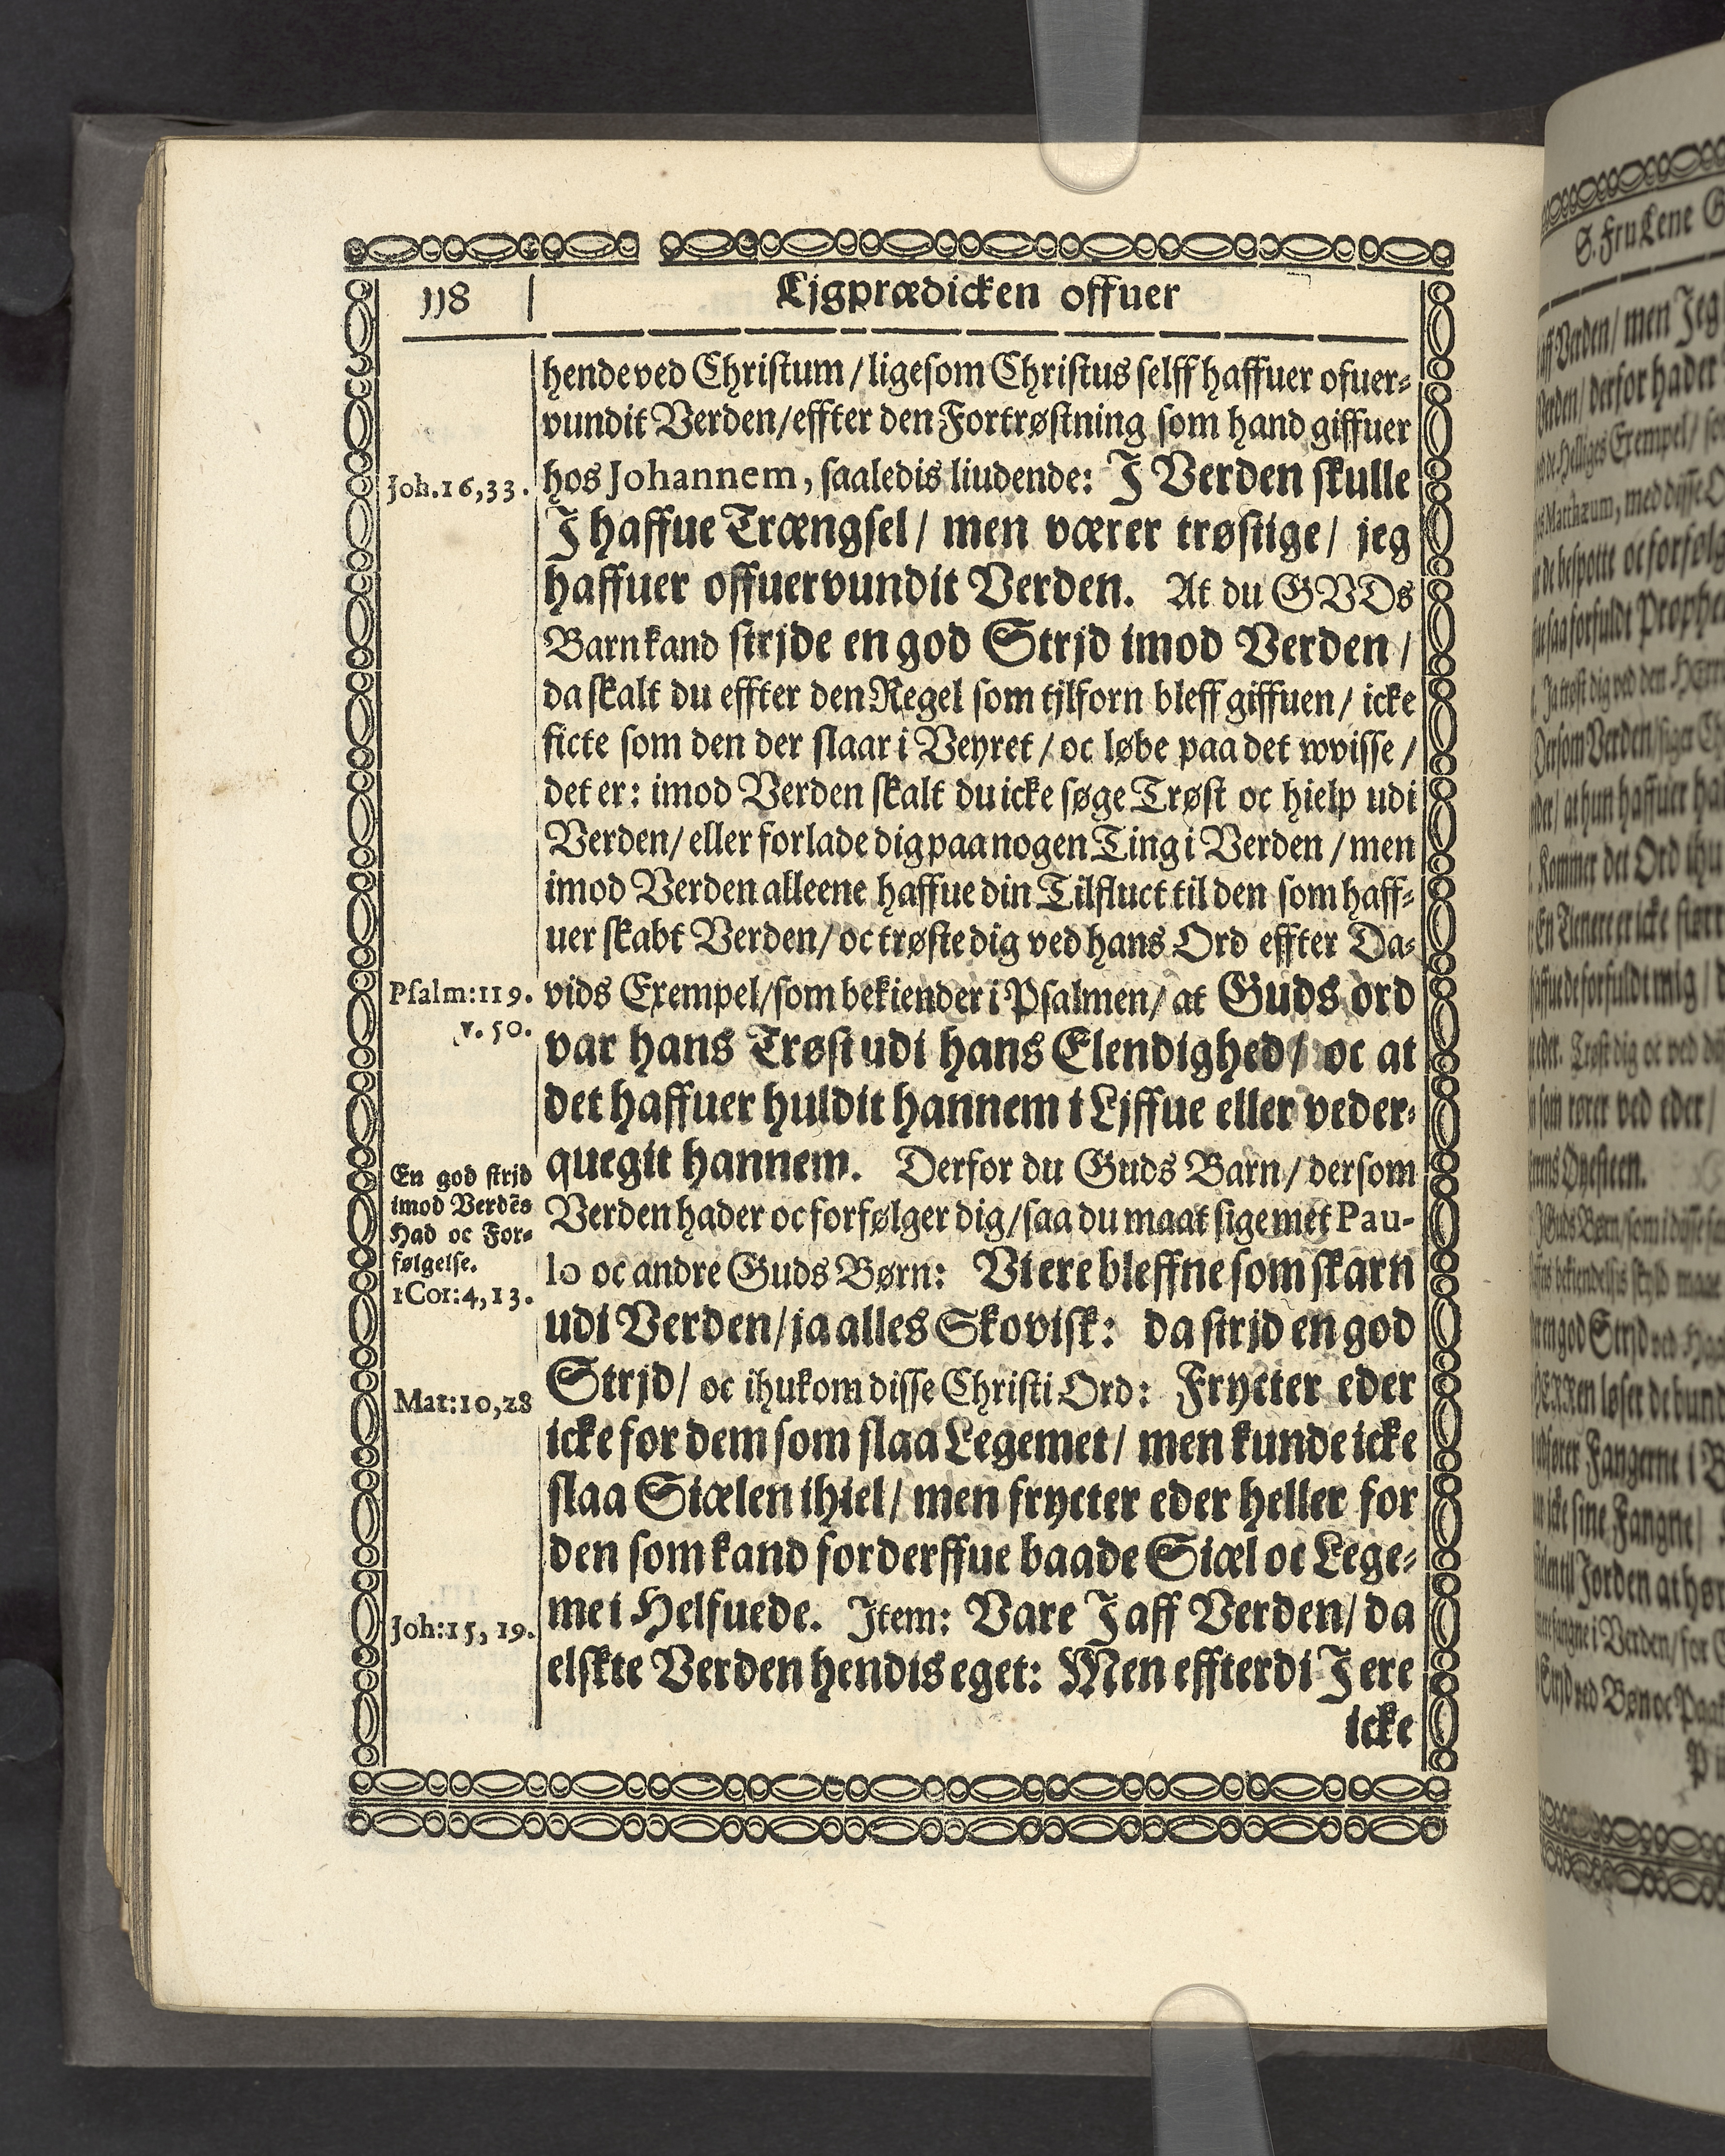 118
Ligprædicken offuer
hende ved Christum / ligesom Christus selff haffuer ofuer⸗
vundit Verden / effter den Fortrøstning som hand giffuer
Joh. 16, 33.
hos Johannem, saaledis liudende: J Verden skulle
J haffue Trængsel / men værer trøstige / jeg
haffuer offuervundit Verden. At du GVDs
Barn kand strjde en god Strjd imod Verden /
da skalt du effter den Regel som tjlforn bleff giffuen / icke
ficte som den der slaar i Veyret / oc løbe paa det wvisse /
det er: imod Verden skalt du icke søge Trøst oc hielp udi
Verden / eller forlade dig paa nogen Ting i Verden / men
imod Verden alleene haffue din Tilfluct til den som haff⸗
uer skabt Verden / oc trøste dig ved hans Ord effter Da⸗
Psalm: 119.
v. 50.
vids Exempel / som bekiender i Psalmen / at Guds ord
var hans Trøst udi hans Elendighed / oc at
det haffuer huldit hannem i Ljffue eller veder⸗
quegit hannem. Derfor du Guds Barn / dersom
En god strjd
imod Verdēs
Had oc For⸗
følgelse.
1 Cor: 4, 13.
Verden hader oc forfølger dig / saa du maat sige met Pau-
lo oc andre Guds Børn: Vi ere bleffne som skarn
udi Verden / ja alles Skovisk: da strjd en god
Mat: 10, 28
Strjd / oc ihukom disse Christi Ord: Frycter eder
icke for dem som slaa Legemet / men kunde icke
slaa Siælen ihiel / men frycter eder heller for
den som kand forderffue baade Siæl oc Lege⸗
Joh: 15, 19.
me i Helfuede. Item: Vare J aff Verden / da
elskte Verden hendis eget: Men effterdi J ere
icke
S. Fru Lene